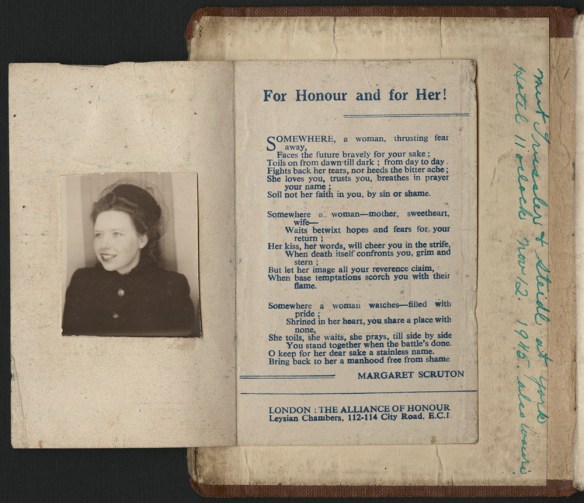 For Honour and for Her!
SOMEWHERE, a woman, thrusting fear
away,
Faces the future bravely for your sake;
Toils on from dawn till dark; from day to day
Fights back her tears, nor heeds the bitter ache;
She loves you, trusts you, breathes in prayer
your name;
Soil not her faith in you, by sin or shame.
Somewhere a woman—mother, sweetheart,
wife—
Waits betwixt hopes and fears for your
return;
Her kiss, her words, will cheer you in the strife,
When death itself confronts you, grim and
stern;
But let her image all your reverence claim,
When base temptations scorch you with their
flame.
Somewhere a woman watches—filled with
pride;
Shrined in her heart, you share a place with
none,
She toils, she waits, she prays, till side by side
You stand together when the battle's done.
O keep for her dear sake a stainless name.
Bring back to her a manhood free from shame
MARGARET SCRUTON
LONDON: THE ALLIANCE OF HONOUR
Leysian Chambers, 112-114 City Road, E.C.1
Meet Tressler & Steidl at York
Hotel 11 o'clock Nov 12 1945.